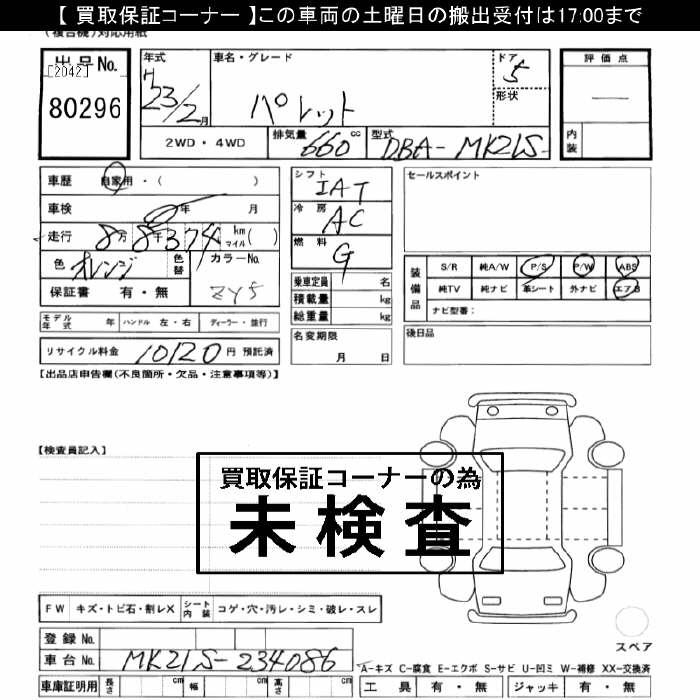 【 買取保証コーナー 】この車両の土曜日の搬出受付は17:00まで
(複合機)対応用紙
出品No.
[2042]
80296
年式
H 23/2月
車名・グレード
パレット
ドア
5
形状
評価点
―
内装
2WD・4WD
排気量 660 cc
型式 DBA-MK21S-
車歴 自家用・( )
車検 年 月
走行 8万8千374 km マイル( )
色 オレンジ
色替
カラーNo. ZY5
保証書 有・無
シフト IAT
冷房 AC
燃料 G
乗車定員 名
積載量 kg
総重量 kg
セールスポイント
装備品
S/R 純A/W P/S P/W ABS
純TV 純ナビ 革シート 外ナビ エアB
ナビ型番:
モデル年式 年 ハンドル 左・右 ディーラー・並行
名変期限 月 日
後日品
リサイクル料金 10120 円 預託済
【出品店申告欄(不良箇所・欠品・注意事項等)】
【検査員記入】
買取保証コーナーの為
未検査
FW キズ・トビ石・割レX シート内装 コゲ・穴・汚レ・シミ・破レ・スレ
スペア
登録No.
車台No. MK21S-234086
A-キズ C-腐食 E-エクボ S-サビ U-凹ミ W-補修 XX-交換済
車庫証明用 長さ cm 幅 cm 高さ cm
工具 有・無 ジャッキ 有・無